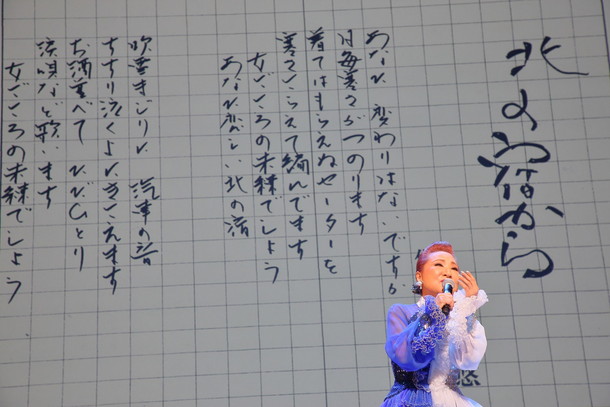 北の宿から
あなた 変わりはないですか
日毎寒さがつのります
着てはもらえぬセーターを
寒さこらえて編んでます
女ごころの未練でしょう
あなた恋しい北の宿
吹雪まじりに 汽車の音
すすり泣くよにきこえます
お酒並べて ただひとり
涙唄など歌います
女ごころの未練でしょう
悠